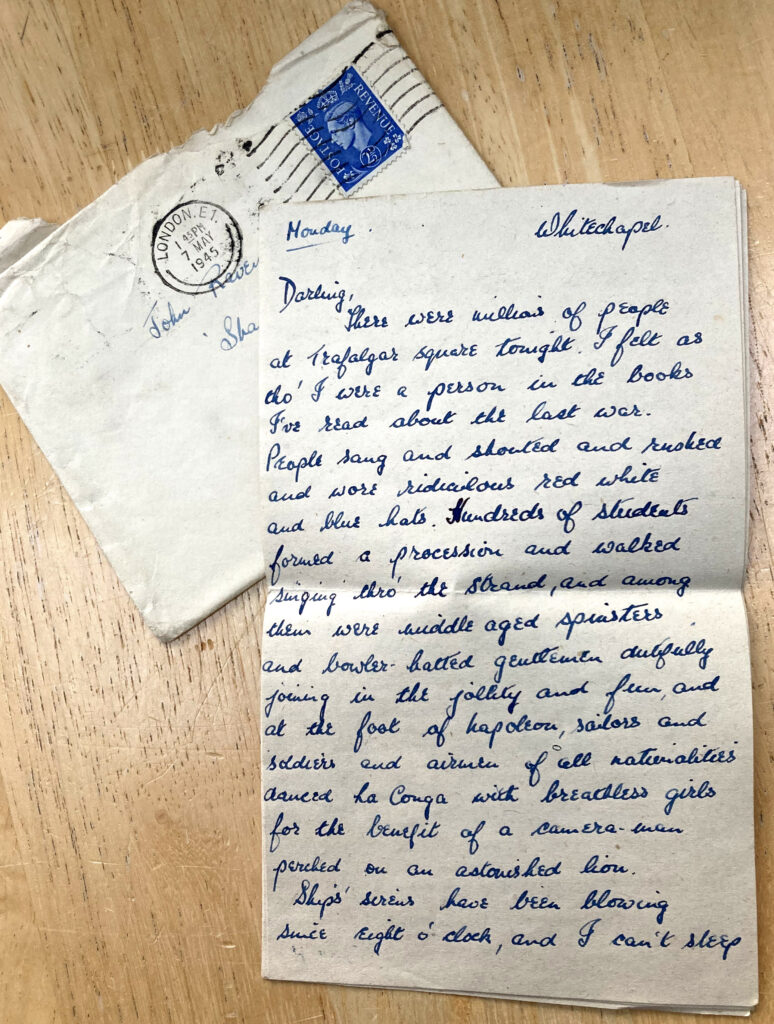 POSTAGE REVENUE
2½
LONDON. E1.
1 45 PM
7 MAY
1945
John Raven
Sha
Monday. Whitechapel.
Darling,
There were millions of people
at Trafalgar square tonight. I felt as
tho' I were a person in the books
I've read about the last war.
People sang and shouted and rushed
and wore ridiculous red white
and blue hats. Hundreds of students
formed a procession and walked
singing thro' the Strand, and among
them were middle aged spinsters
and bowler-hatted gentlemen dutifully
joining in the jollity and fun, and
at the foot of Napoleon, sailors and
soldiers and airmen of all nationalities
danced La Conga with breathless girls
for the benefit of a camera-man
perched on an astonished lion.
Ships' sirens have been blowing
since eight o'clock, and I can't sleep